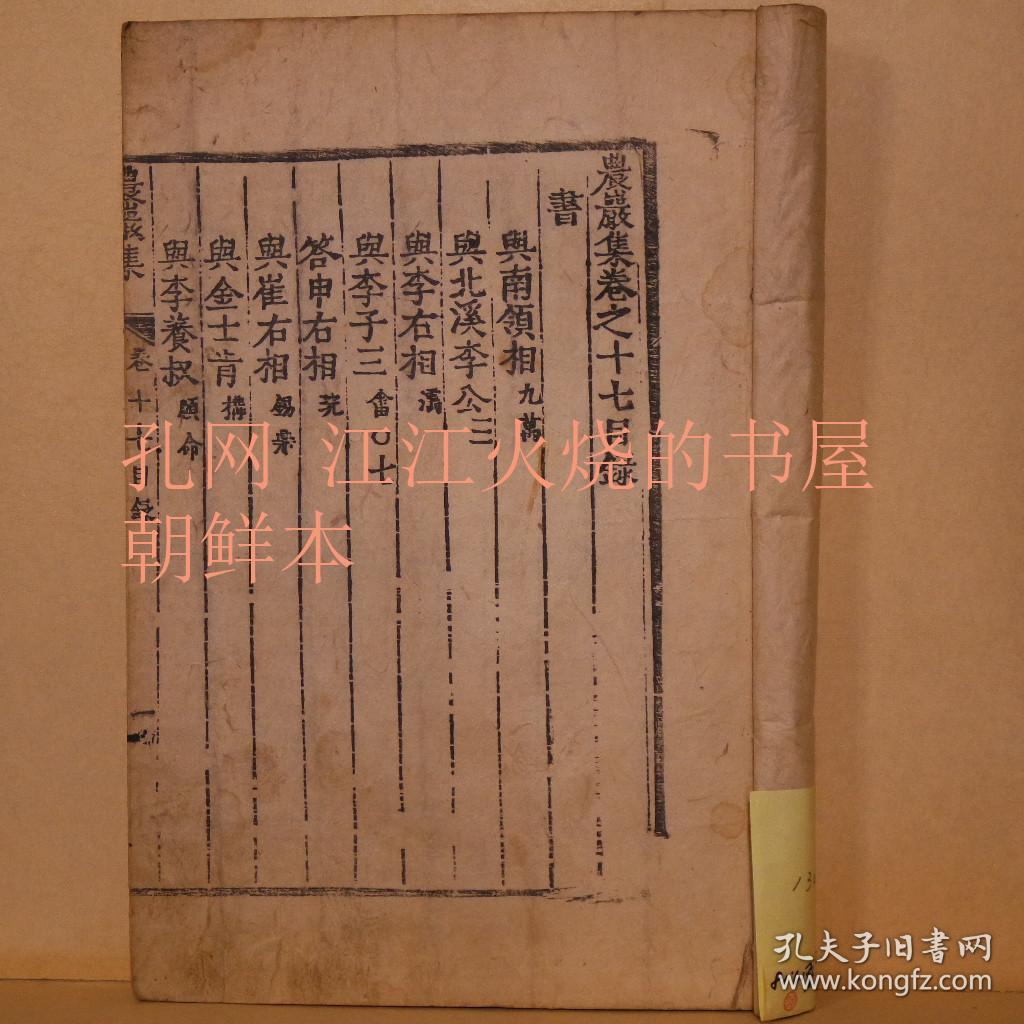 農巖集卷之十七目錄
書
與南領相九萬
與北溪李公二
與李右相濡
與李子三畬○七
答申右相琓
與崔右相錫鼎
與金士肯構
與李養叔頤命
農巖集 卷十七目錄 一
孔网 江江火烧的书屋
朝鲜本
13
孔夫子旧书网
www.kongfz.com